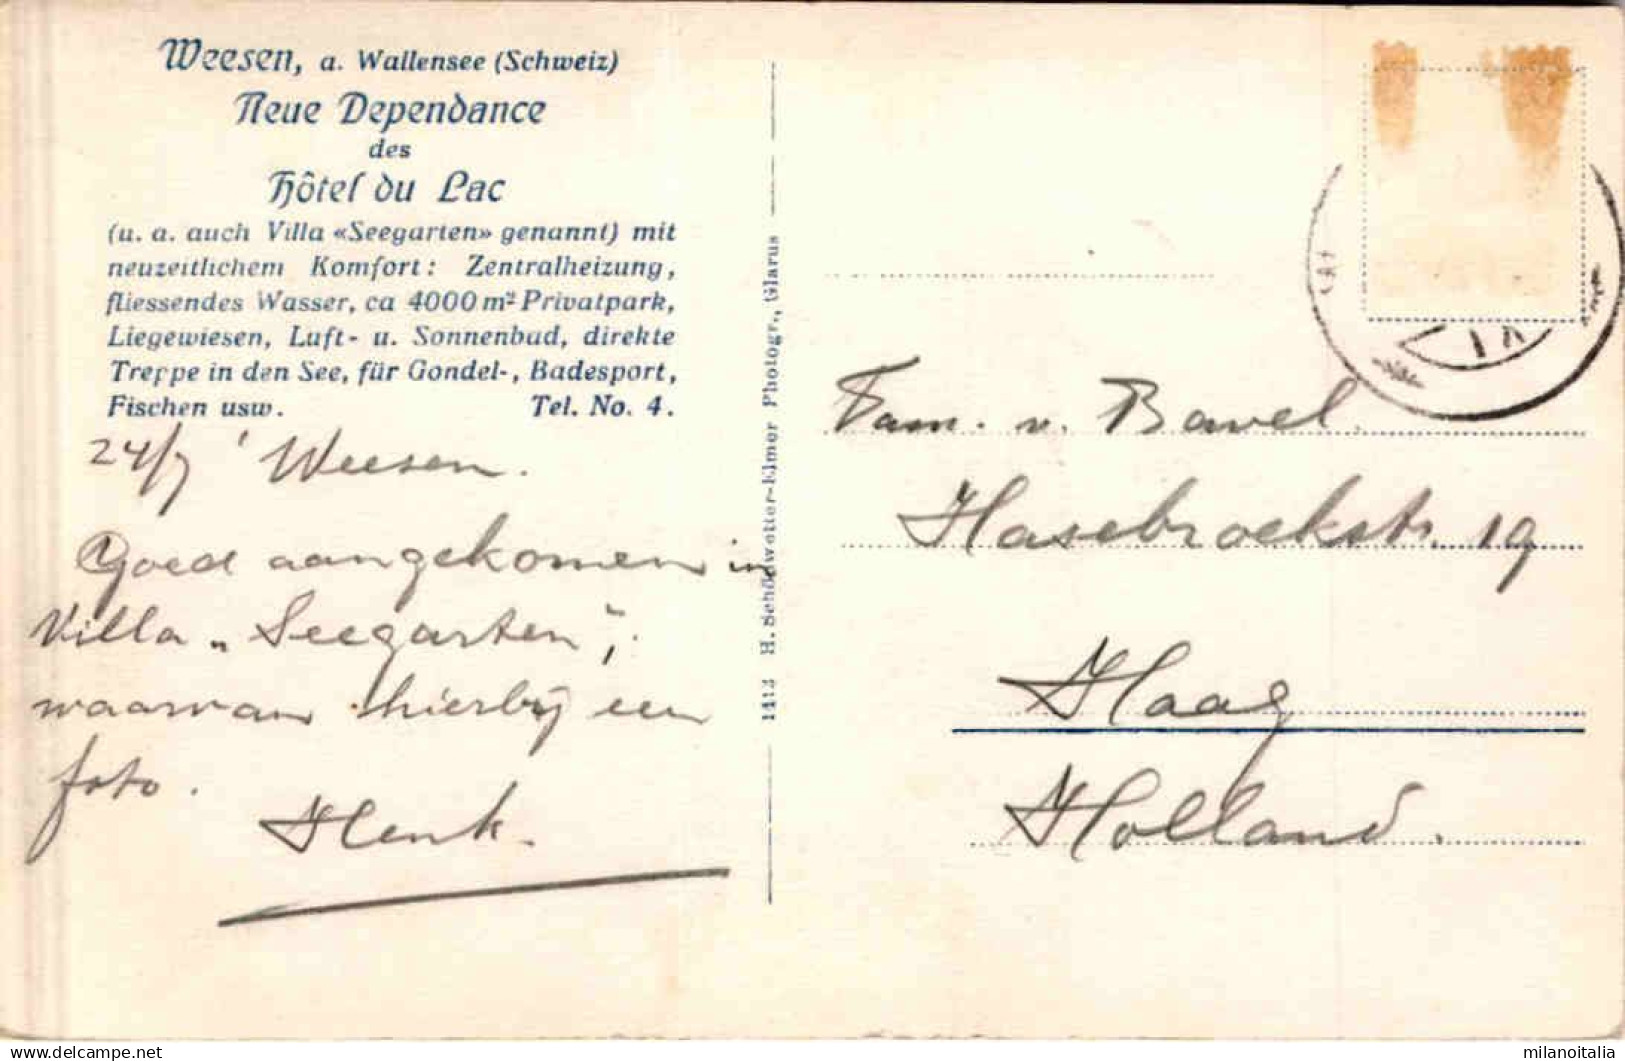 Weesen, a. Wallensee (Schweiz)
Neue Dependance
des
Hôtel du Lac
(u. a. auch Villa «Seegarten» genannt) mit
neuzeitlichem Komfort: Zentralheizung,
fliessendes Wasser, ca 4000 m² Privatpark,
Liegewiesen, Luft- u. Sonnenbad, direkte
Treppe in den See, für Gondel-, Badesport,
Fischen usw. Tel. No. 4.
24/7 ' Weesen.
Goed aangekomen in
Villa „Seegarten",
waarvan hierbij een
foto.
Henk.
1413 H. Schönwetter-Elmer Photogr., Glarus
Fam. v. Bavel.
Hasebroekstr. 19
Haag
Holland.
milanoitalia
www.delcampe.net